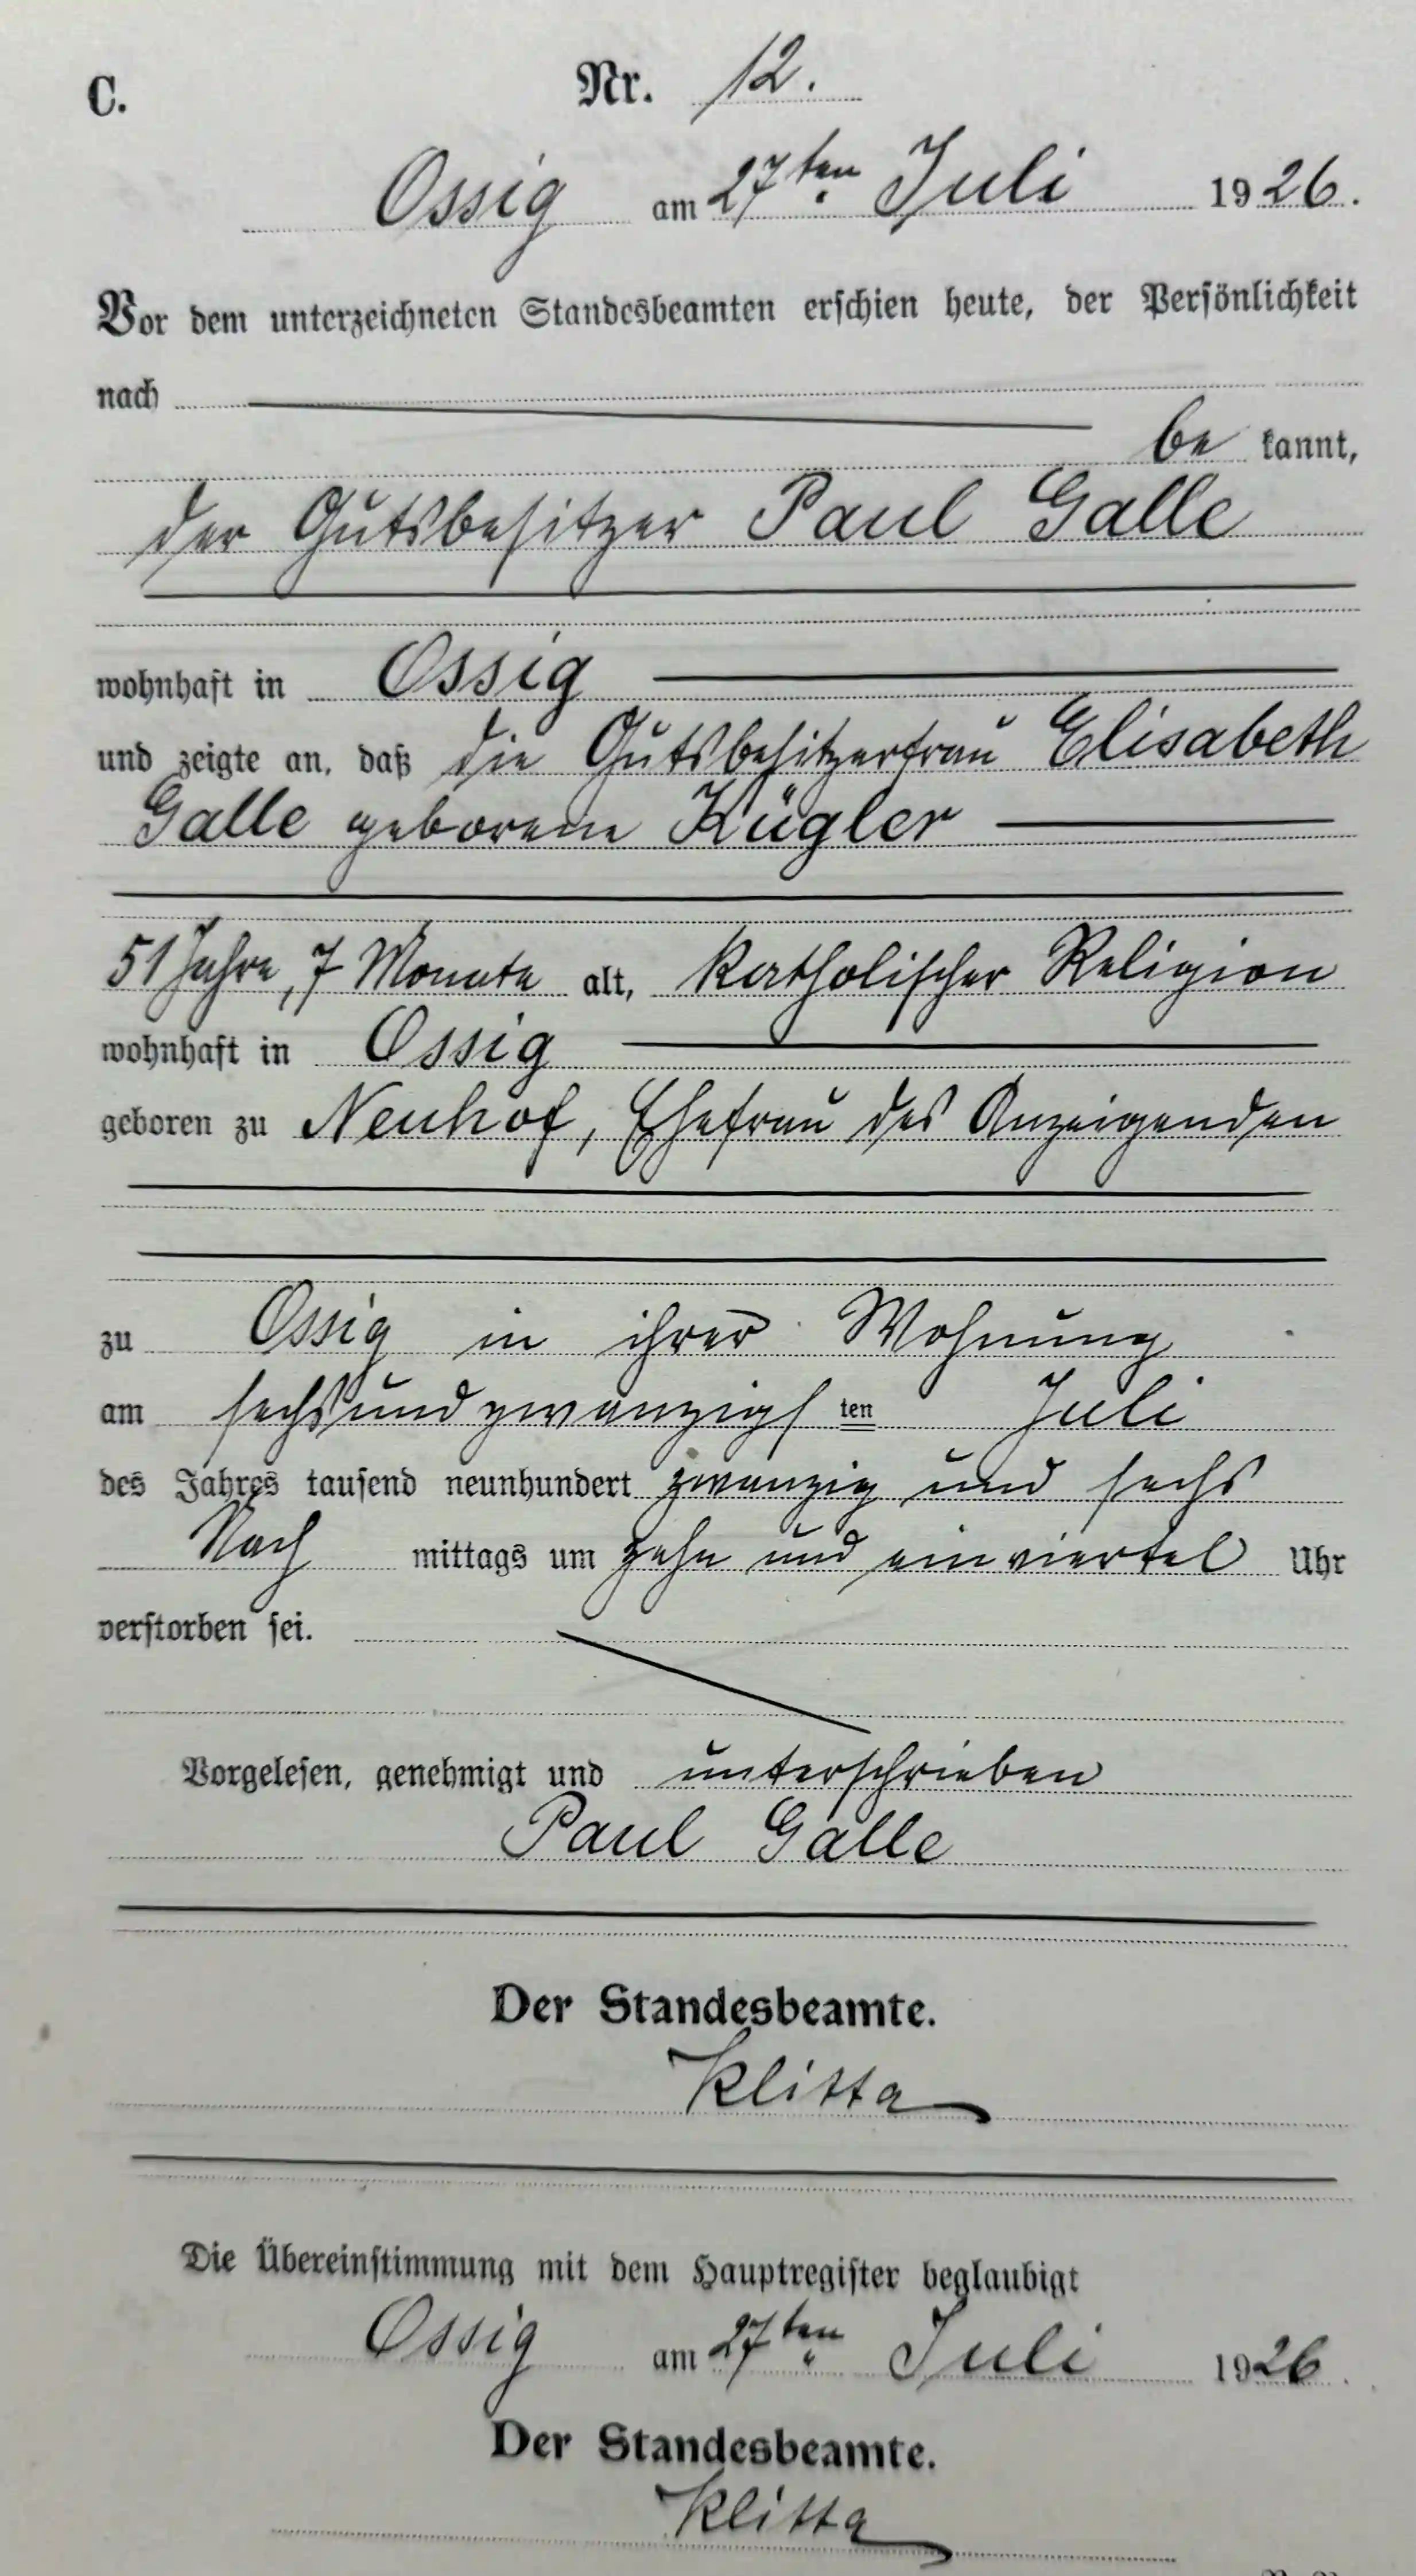 C. Nr. 12.
Ossig am 27ten Juli 1926.
Vor dem unterzeichneten Standesbeamten erschien heute, der Persönlichkeit
nach
be kannt,
der Gutsbesitzer Paul Galle
wohnhaft in Ossig
und zeigte an, daß die Gutsbesitzerfrau Elisabeth
Galle geborene Kügler
51 Jahre, 7 Monate alt, katholischer Religion
wohnhaft in Ossig
geboren zu Neuhof, Ehefrau des Anzeigenden
zu Ossig in ihrer Wohnung
am sechsundzwanzigsten Juli
des Jahres tausend neunhundert zwanzig und sechs
Nach mittags um zehn und einviertel Uhr
verstorben sei.
Vorgelesen, genehmigt und unterschrieben
Paul Galle
Der Standesbeamte.
Klitta
Die Übereinstimmung mit dem Hauptregister beglaubigt
Ossig am 27ten Juli 1926
Der Standesbeamte.
Klitta